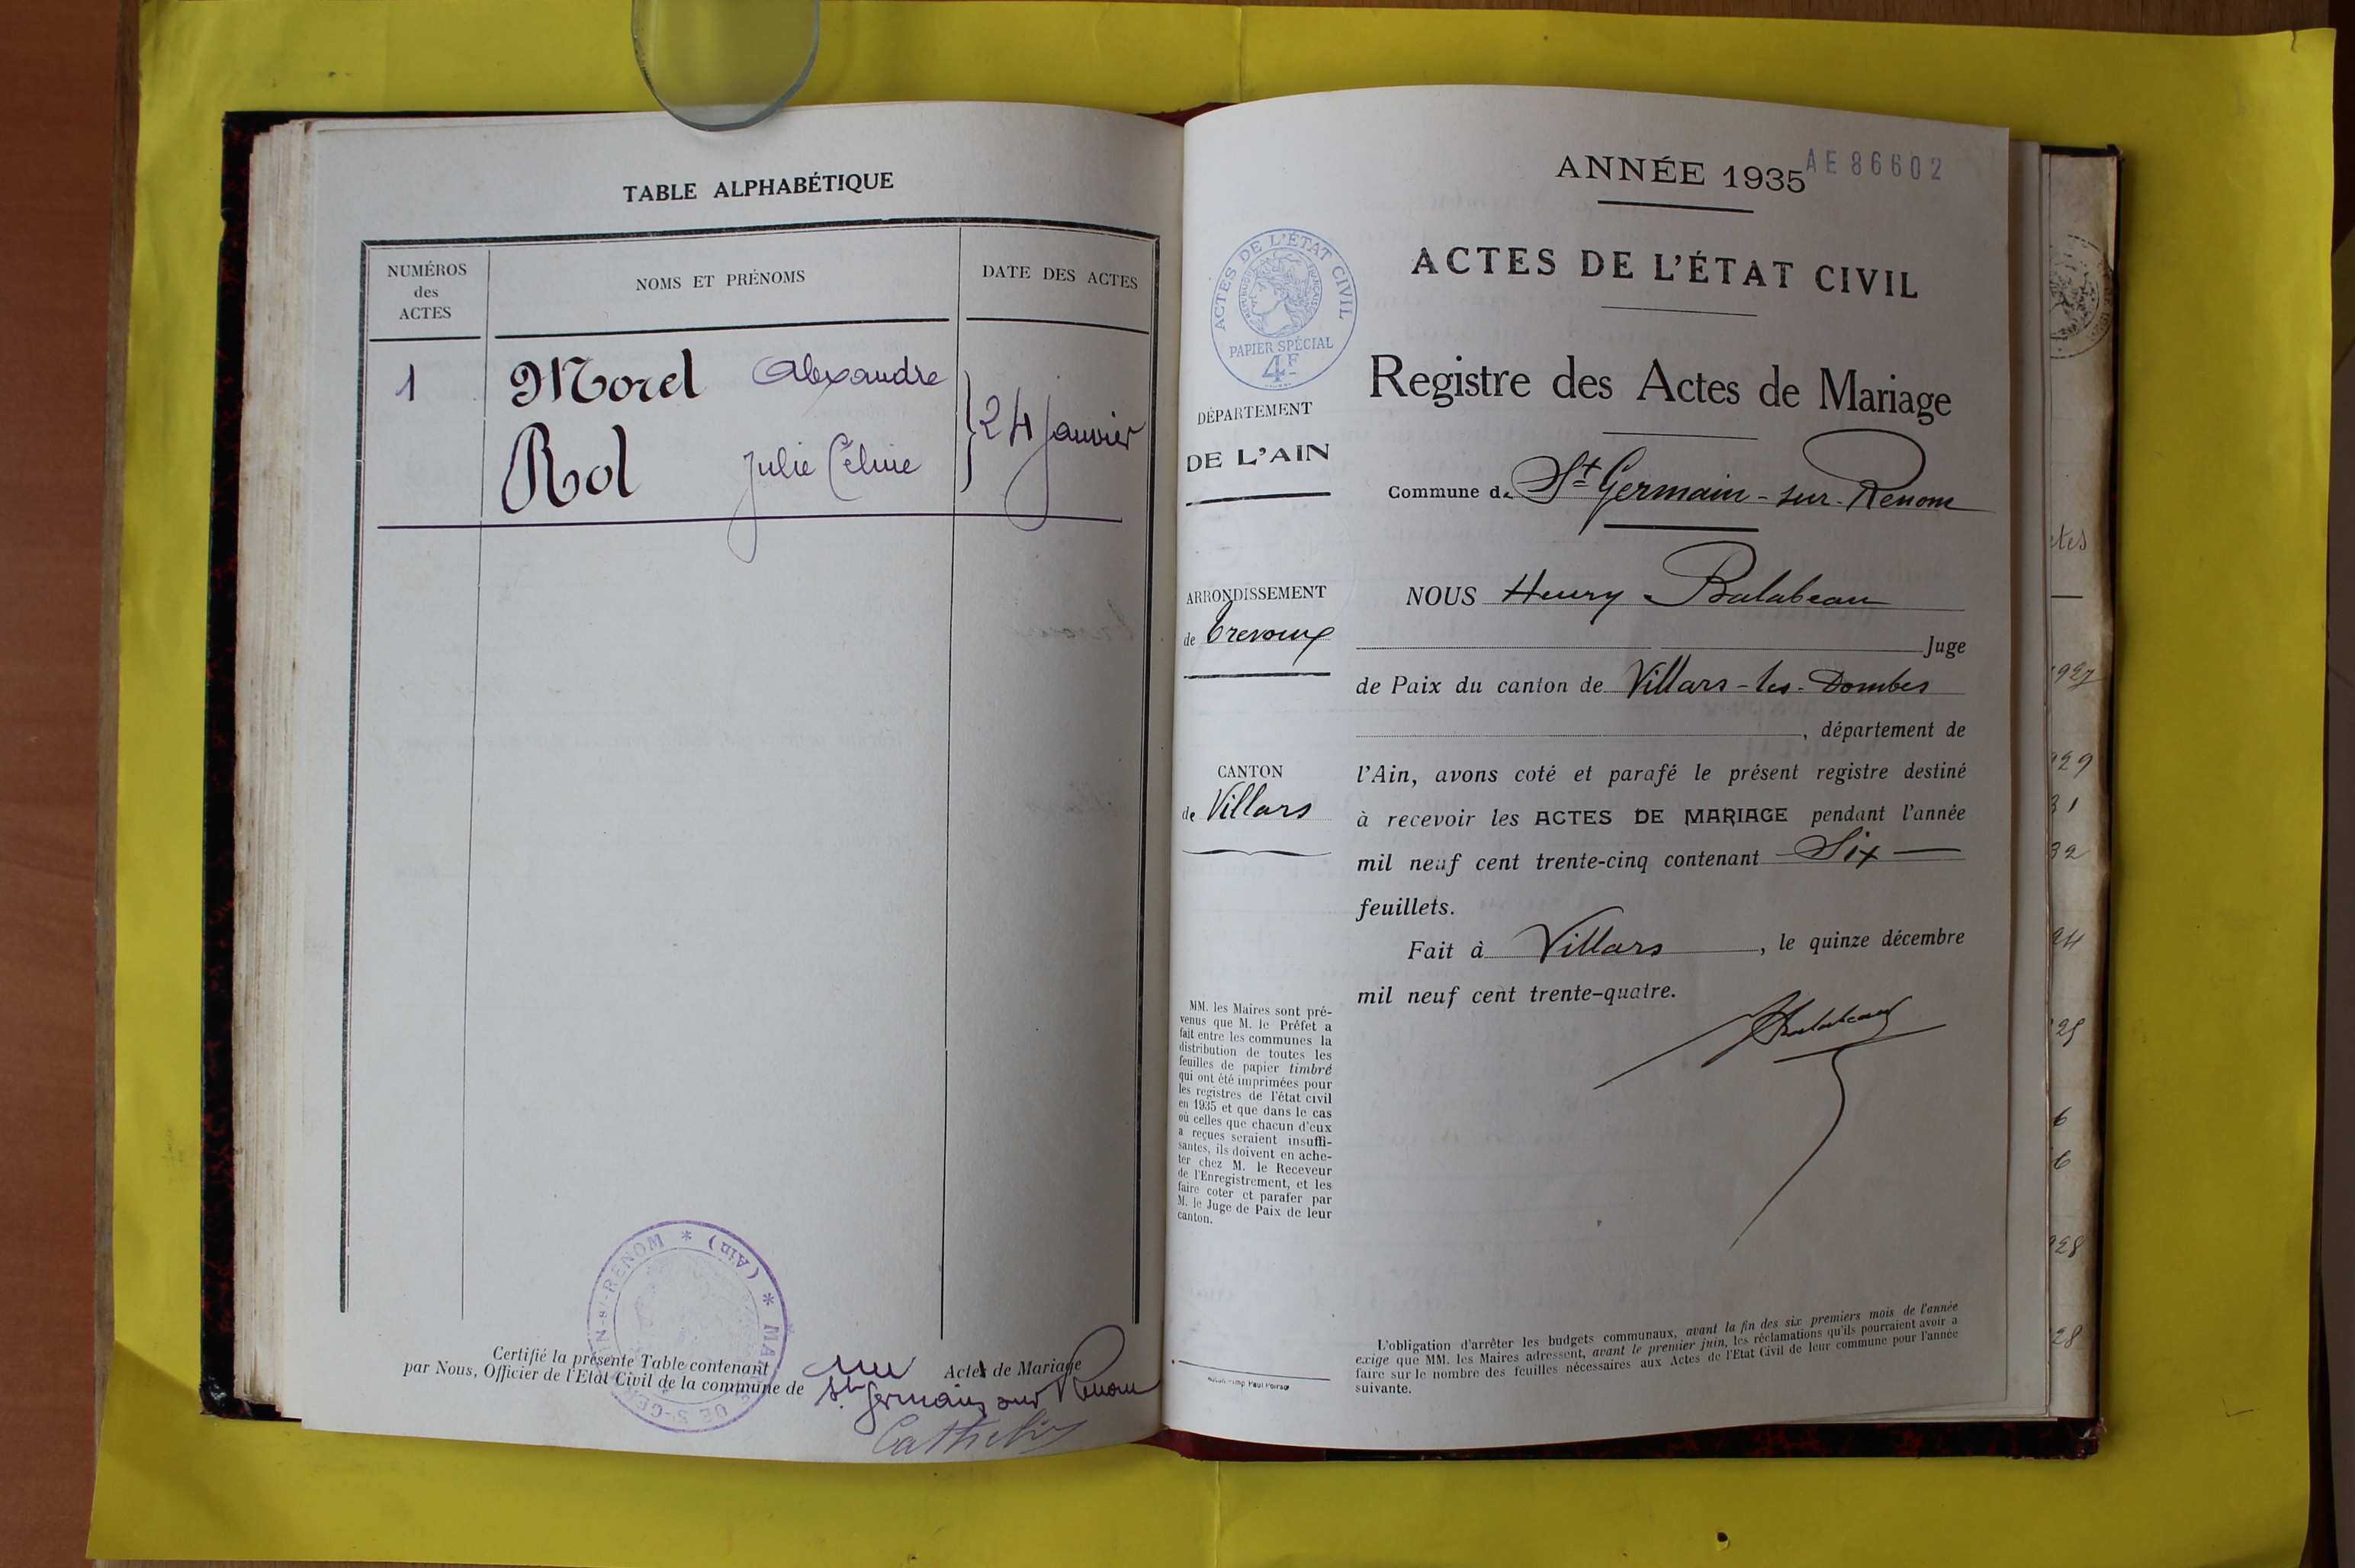 TABLE ALPHABÉTIQUE
NUMÉROS
des
ACTES
NOMS ET PRÉNOMS
DATE DES ACTES
1 Morel Alexandre
Rol Julie Céline
24 janvier
MAIRIE DE St-GERMAIN-s/-RENOM * (Ain) *
Certifié la présente Table contenant une Actes de Mariage
par Nous, Officier de l'Etat Civil de la commune de St. Germain sur Renom
ANNÉE 1935
AE86602
ACTES DE L'ÉTAT CIVIL
PAPIER SPÉCIAL
4F
ACTES DE L'ÉTAT CIVIL
Registre des Actes de Mariage
DÉPARTEMENT
DE L'AIN
Commune de St Germain-sur-Renom
ARRONDISSEMENT
de Trevoux
NOUS Henry Balabeau
Juge
de Paix du canton de Villars-les-Dombes
, département de
CANTON
de Villars
l'Ain, avons coté et parafé le présent registre destiné
à recevoir les ACTES DE MARIAGE pendant l'année
mil neuf cent trente-cinq contenant Six
feuillets.
Fait à Villars, le quinze décembre
mil neuf cent trente-quatre.
MM. les Maires sont pré-
venus que M. le Préfet a
fait entre les communes la
distribution de toutes les
feuilles de papier timbré
qui ont été imprimées pour
les registres de l'état civil
en 1935 et que dans le cas
où celles que chacun d'eux
a reçues seraient insuffi-
santes, ils doivent en ache-
ter chez M. le Receveur
de l'Enregistrement, et les
faire coter et parafer par
M. le Juge de Paix de leur
canton.
L'obligation d'arrêter les budgets communaux, avant la fin des six premiers mois de l'année
exige que MM. les Maires adressent, avant le premier juin, les réclamations qu'ils pourraient avoir a
faire sur le nombre des feuilles nécessaires aux Actes de l'Etat Civil de leur commune pour l'année
suivante.
Imp Paul Poirson